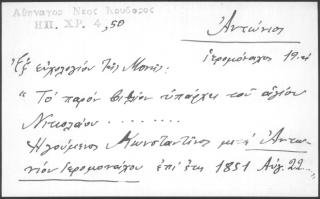 Αθηναγο Νέος Κουβαρας
ΗΠ. ΧΡ. 4,50
Ἀντώνιος
ἱερομόναχος 19 αἰ
Ἐξ εὐχολογίου τῆς Μονῆς:
"Τὸ παρὸν βιβλίον ὑπάρχει τοῦ ἁγίου
Νικολάου . . . . . . . .
Ἡγούμενος Κωνσταντῖνος μετὰ Ἀντω-
νίου Ἱερομονάχου ἐπὶ ἔτη 1851 Αὐγ. 22